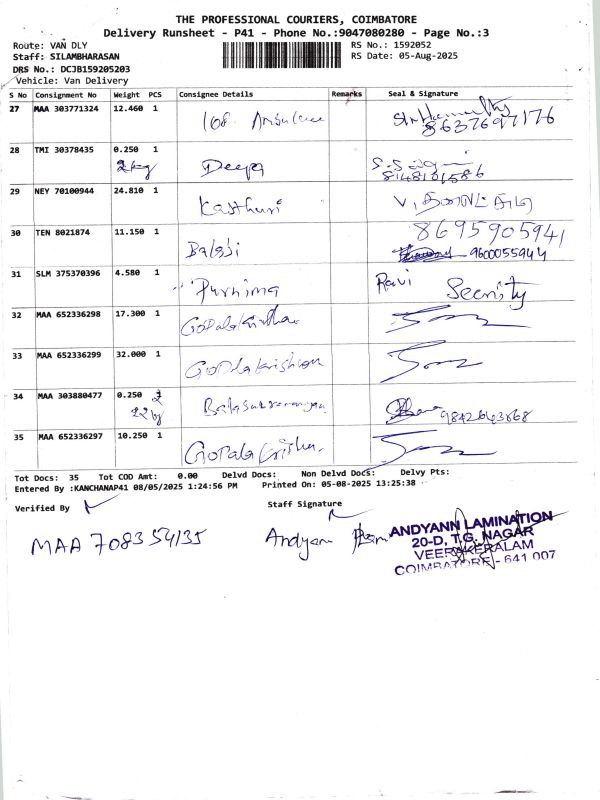 THE PROFESSIONAL COURIERS, COIMBATORE
Delivery Runsheet - P41 - Phone No.:9047080280 - Page No.:3
Route: VAN DLY
RS No.: 1592052
Staff: SILAMBHARASAN
RS Date: 05-Aug-2025
DRS No.: DCJB159205203
Vehicle: Van Delivery
S No Consignment No Weight PCS Consignee Details Remarks Seal & Signature
27 MAA 303771324 12.460 1 108 Ambulance
8637697176
28 TMI 30378435 0.250 1 Deepa
2kg 8148101586
29 NEY 70100944 24.810 1 Kasthuri
30 TEN 8021874 11.150 1 Balaji 8695905941
9600055944
31 SLM 375370396 4.580 1 Purnima Ravi Secrity
32 MAA 652336298 17.300 1 Gopalakrishna
33 MAA 652336299 32.000 1 Gopalakrishnan
34 MAA 303880477 0.250 2 Balasubramaniyan
22kg 9842643868
35 MAA 652336297 10.250 1 Gopalakrishna
Tot Docs: 35 Tot COD Amt: 0.00 Delvd Docs: Non Delvd Docs: Delvy Pts:
Entered By :KANCHANAP41 08/05/2025 1:24:56 PM Printed On: 05-08-2025 13:25:38
Verified By Staff Signature
MAA 708354135 Andyann
ANDYANN LAMINATION
20-D, T.G. NAGAR
VEERAKERALAM
COIMBATORE - 641 007